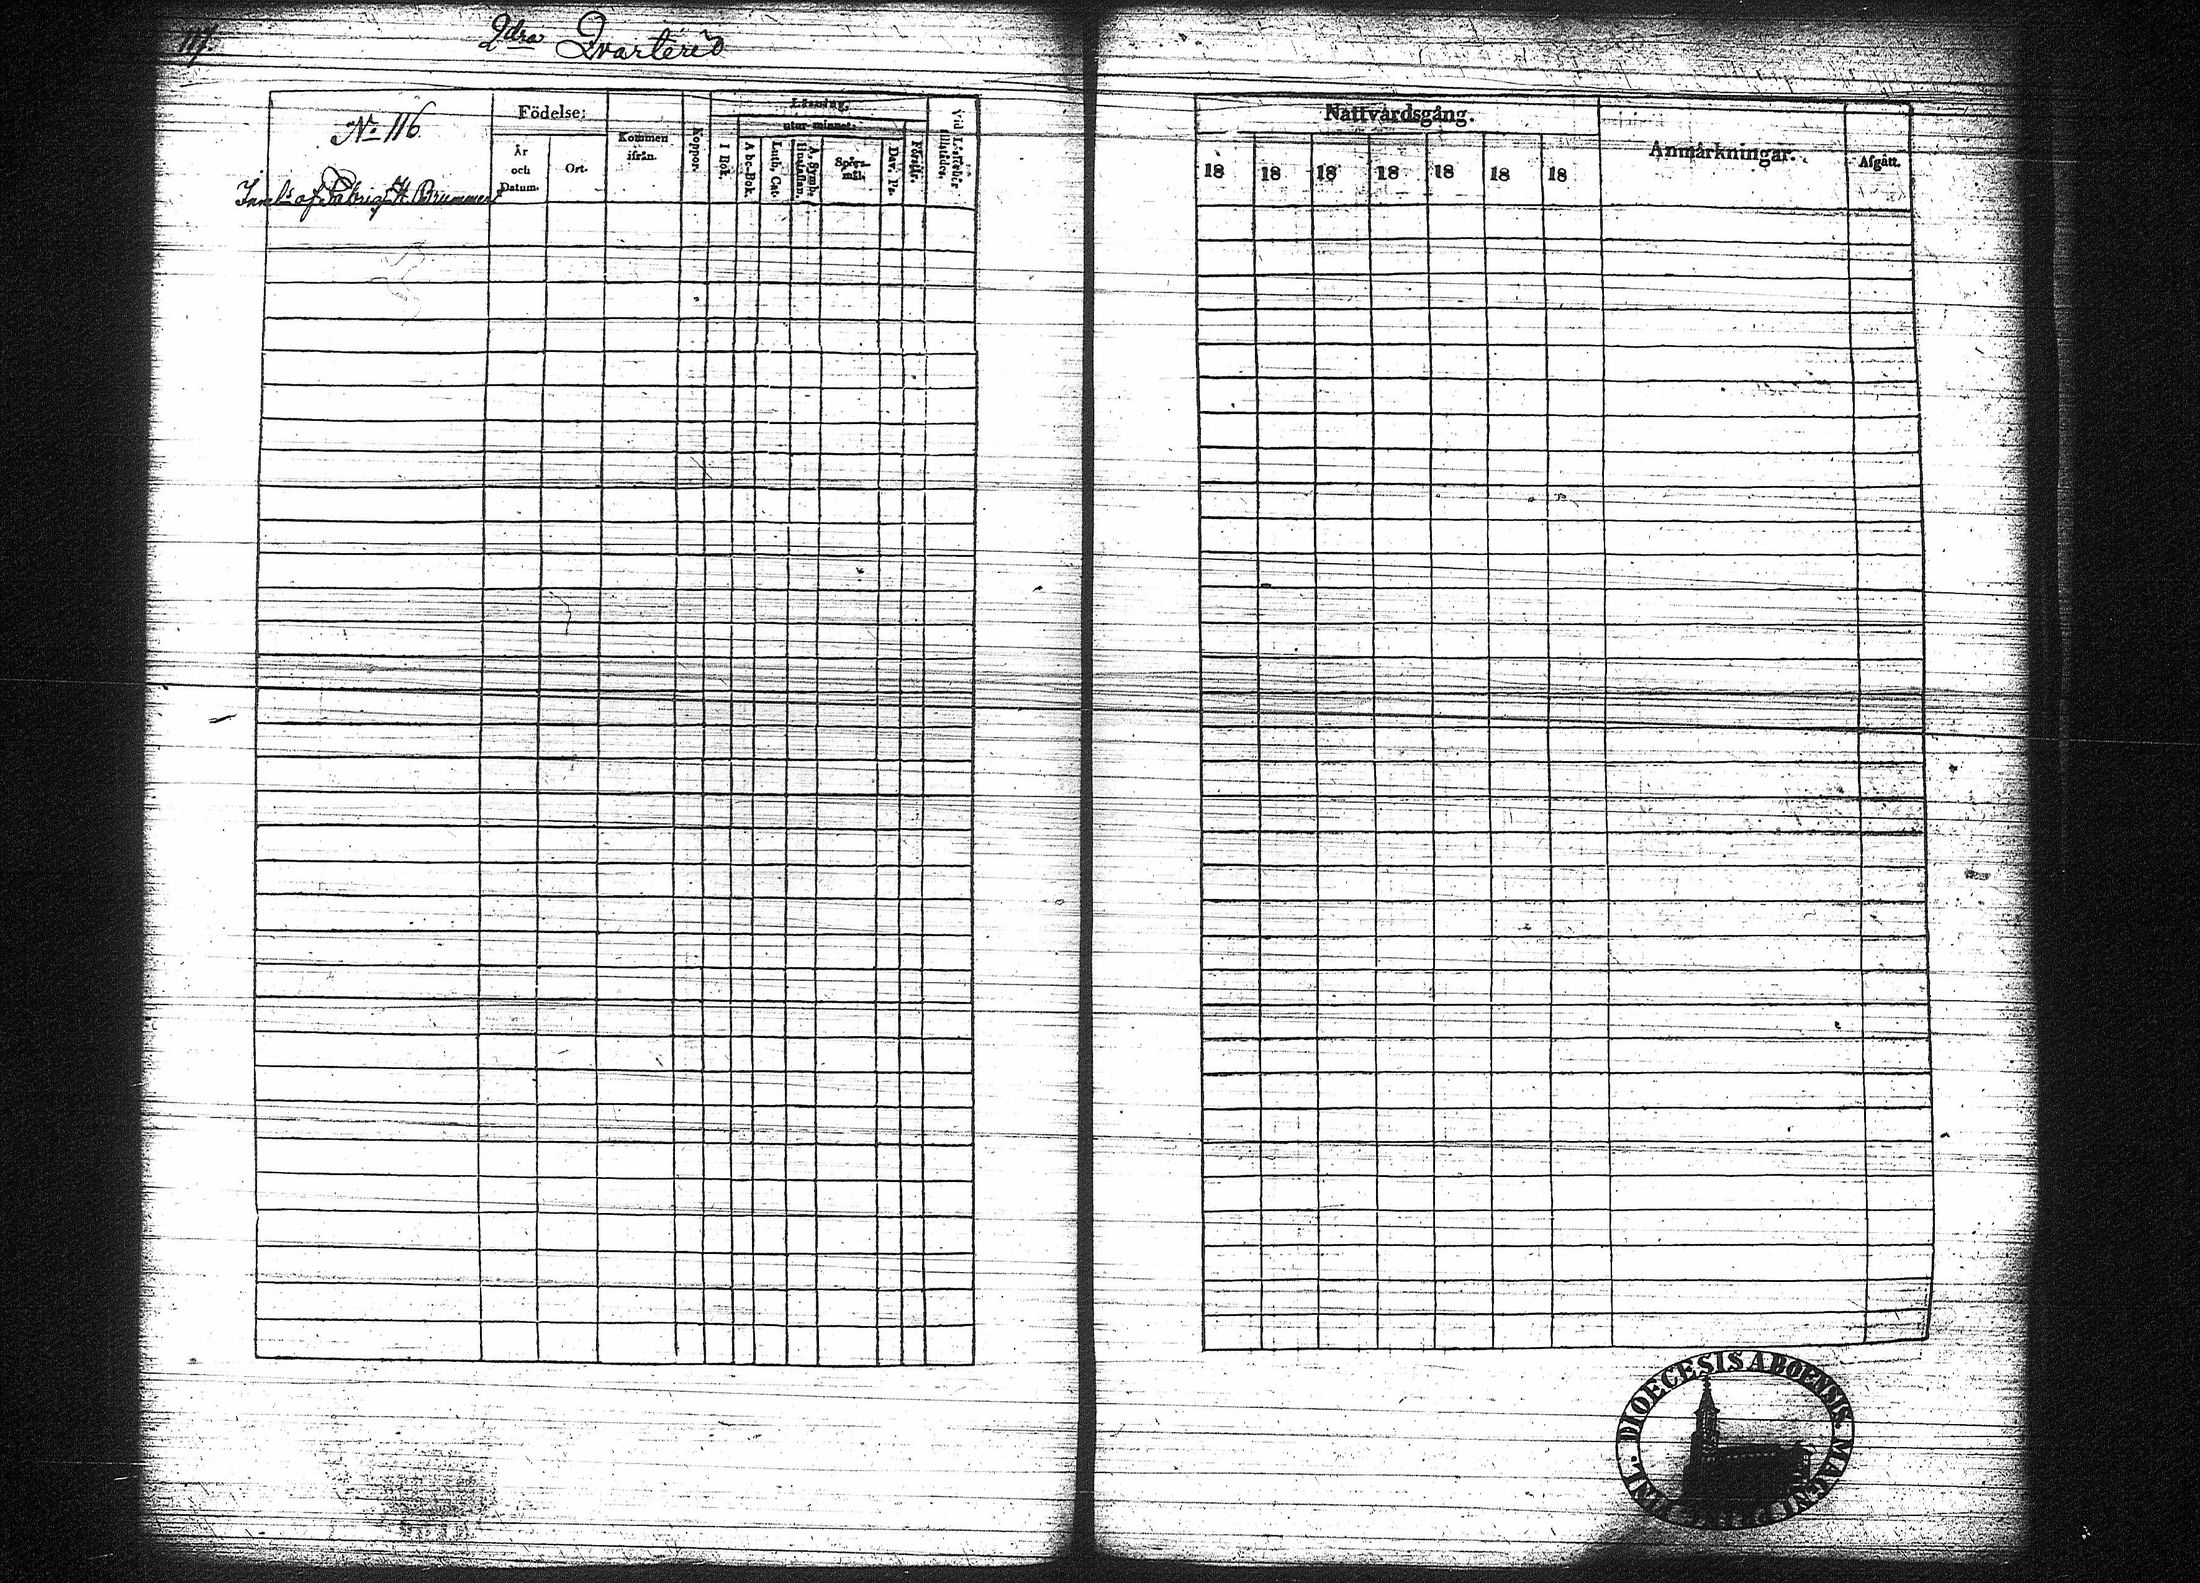 117.
2dra Qvarteret
No 116
Inneh. af Fabriq. H. Brummer
Födelse:
År och Datum.
Ort.
Kommen ifrån.
Koppor.
Läsning.
utur minnet:
I Bok.
Abc-Bok.
Luth. Cat.
A. Symb. Hustaflan.
Spörsmål.
Dav. Ps.
Förstår.
Vid Läsförhör tillstädes.
Nattvardsgång.
18 18 18 18 18 18 18
Anmärkningar.
Afgått.
DIOECESIS ABOENSIS MAGNI